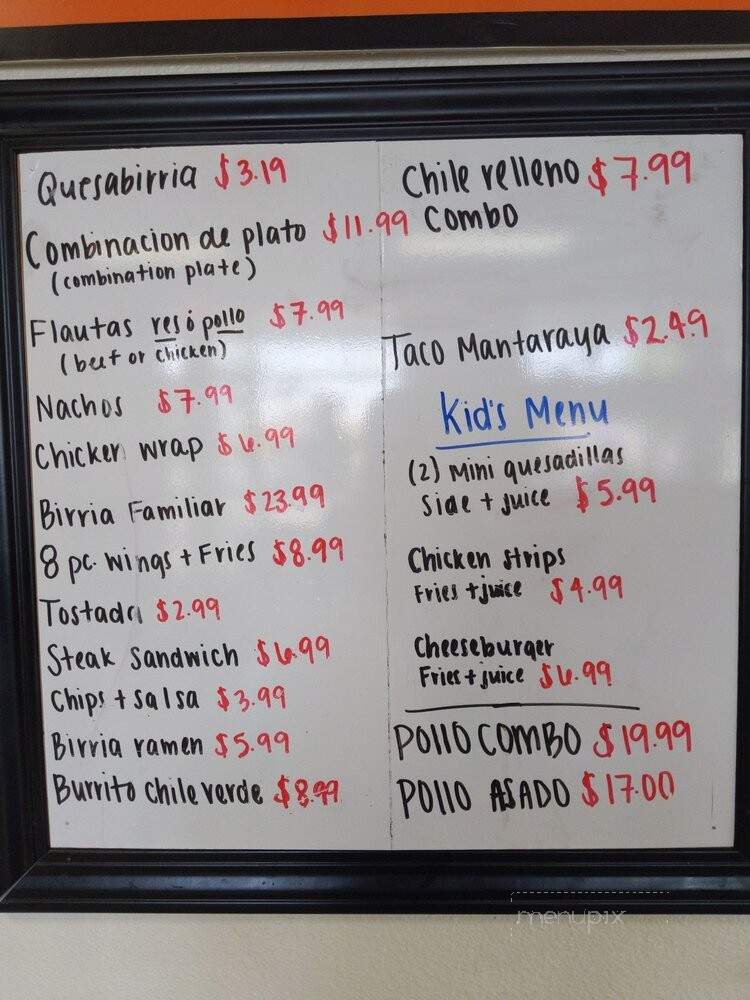 Quesabirria $3.19
Combinacion de plato $11.99
(combination plate)
Flautas res ó pollo $7.99
(beef or chicken)
Nachos $7.99
Chicken wrap $6.99
Birria Familiar $23.99
8 pc. wings + Fries $8.99
Tostada $2.99
Steak Sandwich $6.99
Chips + salsa $3.99
Birria ramen $5.99
Burrito chile verde $8.99
Chile relleno $7.99
Combo
Taco Mantaraya $2.49
Kid's Menu
(2) Mini quesadillas
Side + juice $5.99
Chicken strips
Fries + juice $4.99
Cheeseburger
Fries + juice $6.99
POLLO COMBO $19.99
POLLO ASADO $17.00
menupix